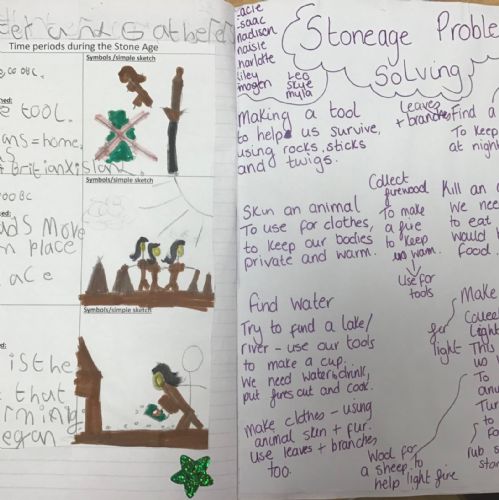 er and Gatherers
Time periods during the Stone Age
Symbols/simple sketch
00 BC.
tool.
ans=home.
Britian x island.
Symbols/simple sketch
00 BC
ads move
m place
ace
Symbols/simple sketch
is the
that
rming
egan
isaac
madison
maisie
harlotte
riley
imogen
Leo
Skye
myla
Stoneage Proble
Solving
Making a tool
to help us survive,
using rocks, sticks
and twigs.
leaves
+ branches
Find a
To keep
at nigh
Skin an animal
To use for clothes,
to keep our bodies
private and warm.
Collect
firewood
To make
a fire
to keep
us warm.
Use for
tools
Kill an
We nee
to eat
would b
food.
Find water
Try to find a lake/
river - use our tools
to make a cup.
We need water to drink,
put fires out and cook.
make clothes - using
animal skin + fur.
use leaves + branches
too.
Wool for
a sheep to
help light fire
for
light
Make
Collec
light
This
us
To
an
Turn
to
fo
rub s
ston